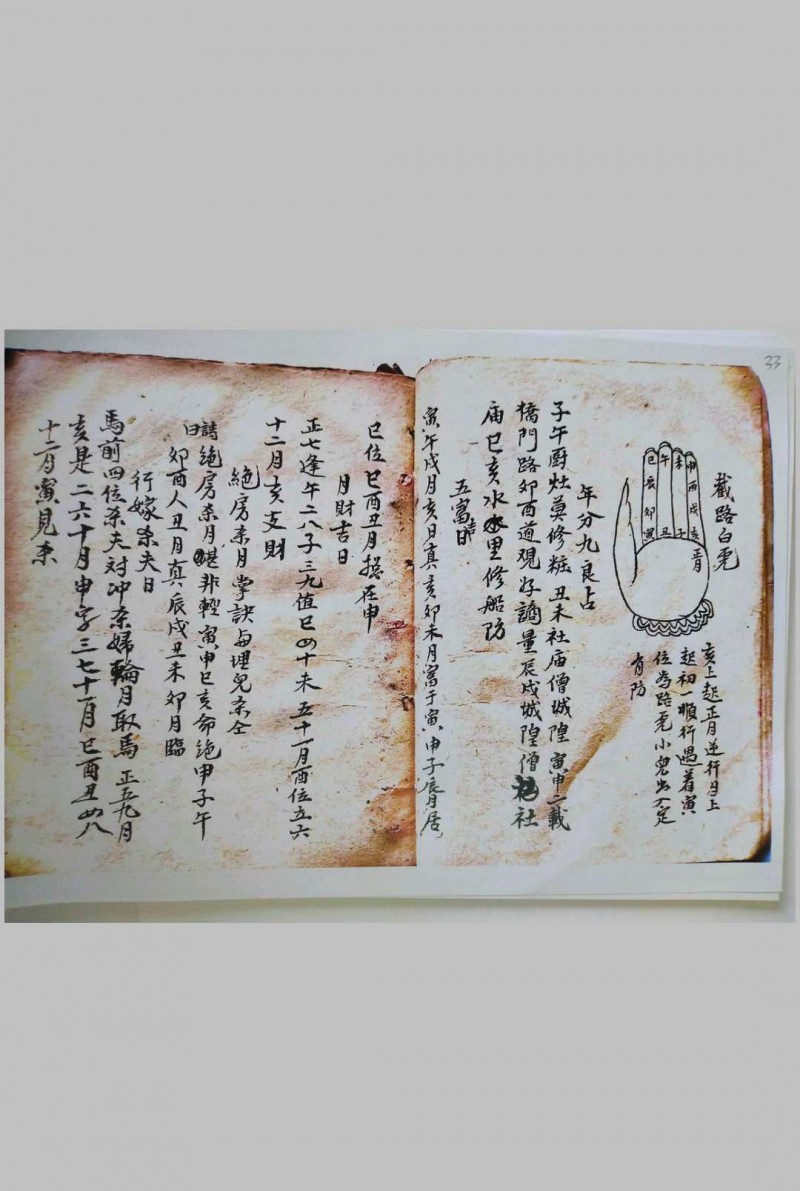 33
截路白虎
巳 午 未 申
辰 酉
卯 戌
寅 丑 子 亥
亥上起正月逆行月上
起初一順行遇着寅
位為路虎小兒出
有防
年分九良占
子午厨灶莫修粧丑未社庙僧城隍寅申二載
橋門路卯酉道观好謫量辰戌城隍僧社
庙巳亥水里修船防
五富吉日
寅午戌月亥日真亥卯未月富于寅申子辰月居
巳位巳酉丑月揔在申
月財吉日
正七逢午二八子三九值巳四十未五十一月酉位立六
十二月亥支財
絕房杀月掌訣與埋兒杀仝
詩曰
絕房杀月堪非輕寅申巳亥命絕申子午
卯酉人丑月真辰戌丑未卯月臨
行嫁杀夫日
馬前四位杀夫対冲杀婦輪月取馬正五九月
亥是二六十月申字三七十一月巳酉丑四八
十二月寅見杀